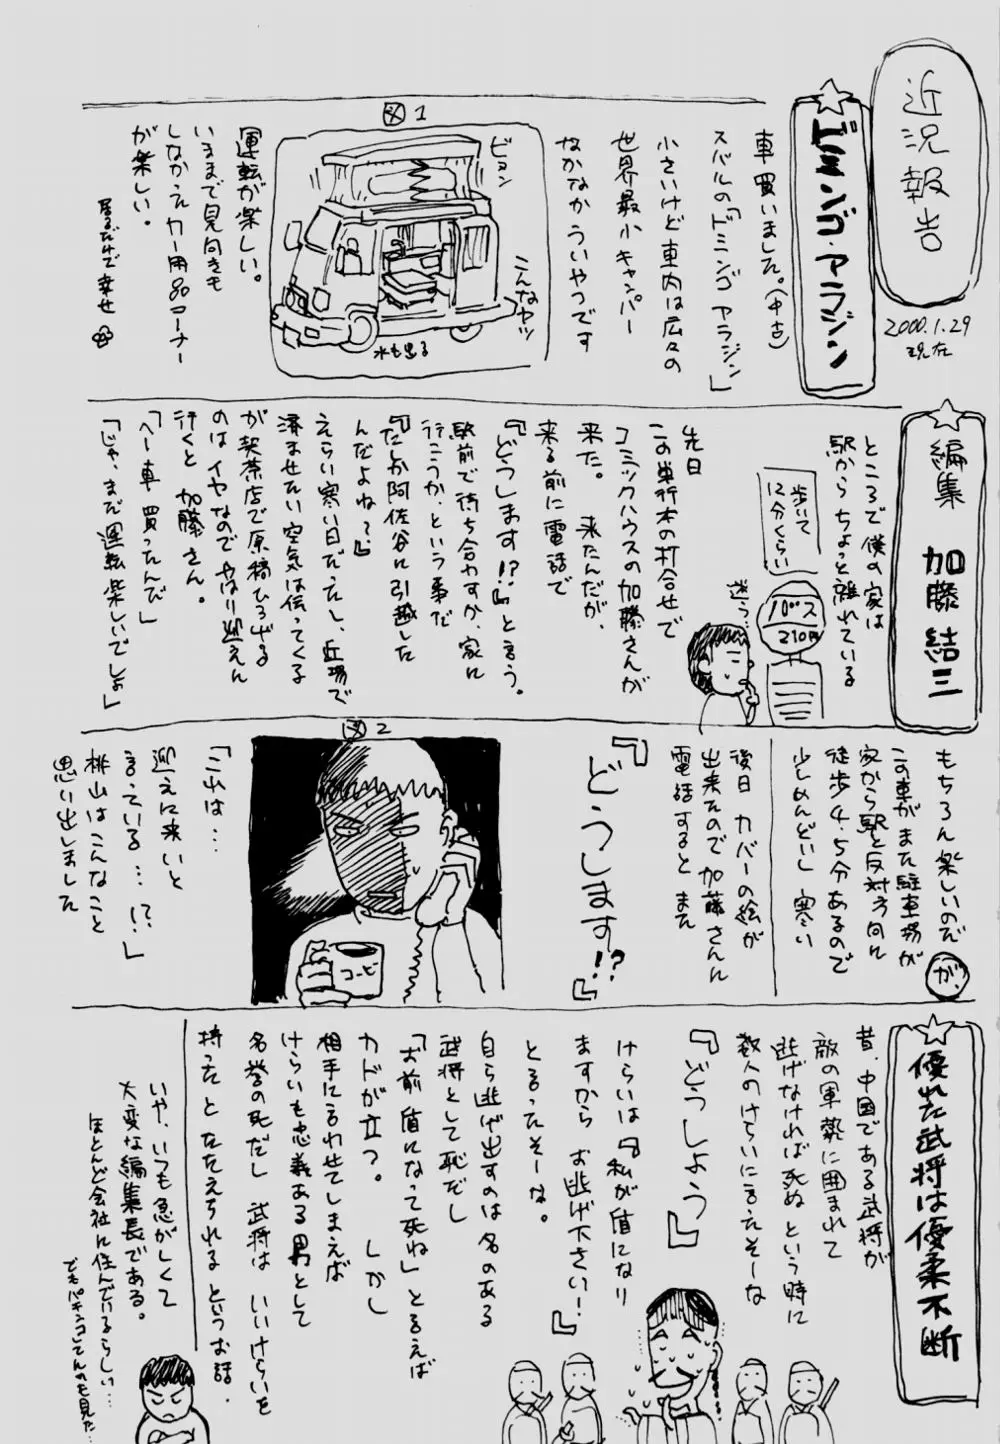 近況報告
2000.1.29
現在
ドミンゴ・アラジン
車買いました。(中古)
スバルの「ドミンゴ アラジン」
小さいけど車内は広々の
世界最小キャンパー
なかなかういやつです
図1
ビヨン
こんなヤツ
水も出る
運転が楽しい。
いままで見向きも
しなかったカー用品コーナー
が楽しい。
居るだけで幸せ
編集 加藤結三
ところで僕の家は
駅からちょっと離れている
歩いて
12分くらい
バス
210円
迷う…
先日
この単行本の打合せで
コミックハウスの加藤さんが
来た。来たんだが、
来る前に電話で
『どうします!?』と言う。
駅前で待ち合わすか、家に
行こうか、という事だ
『たしか阿佐谷に引越した
んだよね?』
えらい寒い日だったし、近場で
済ませたい空気は伝ってくる
が喫茶店で原稿ひろげる
のはイヤなのでやはり迎えに
行くと 加藤さん。
「へー車買ったんだ」
「じゃ、まだ運転楽しいでしょ」
もちろん楽しいのだ
が、
この車がまた駐車場が
家から駅と反対方向に
徒歩4.5分あるので
少しめんどいし 寒い
後日 カバーの絵が
出来たので加藤さんに
電話すると また
『どうします!?』
図2
コーヒ
「これは…
迎えに来いと
言っている…!?」
桃山はこんなこと
思い出しました
優れた武将は優柔不断
昔、中国である武将が
敵の軍勢に囲まれて
逃げなければ死ぬ という時に
数人のけらいに言ったそーな
『どうしよう』
けらいは『私が盾になり
ますから お逃げ下さい!』
と言ったそーな。
自ら逃げ出すのは名のある
武将として恥だし
「お前 盾になって死ね」と言えば
カドが立つ。 しかし
相手に言わせてしまえば
けらいも忠義ある男として
名誉の死だし 武将は いいけらいを
持ったと たたえられる というお話。
いや、いつも急がしくて
大変な編集長である。
ほとんど会社に住んでいるらしい…
でもパチンコしてんのも見た…